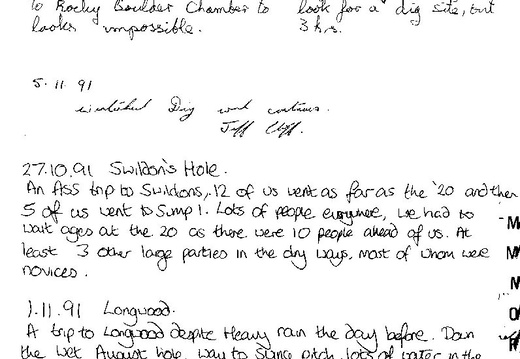 to Rocky Boulder Chamber to look for a dig site, but
looks impossible. 3 hrs.
5.11.91
Dig work continues.
Jeff
27.10.91 Swildon's Hole.
An Ass trip to Swildons, 12 of us went as far as the '20 and then
5 of us went to Sump 1. Lots of people everywhere, we had to
wait ages at the 20 as there were 10 people ahead of us. At
least 3 other large parties in the dry ways, most of whom were
novices.
1.11.91 Longwood.
A trip to Longwood despite Heavy rain the day before. Down
the wet August hole way to Stance pitch, lots of water in the